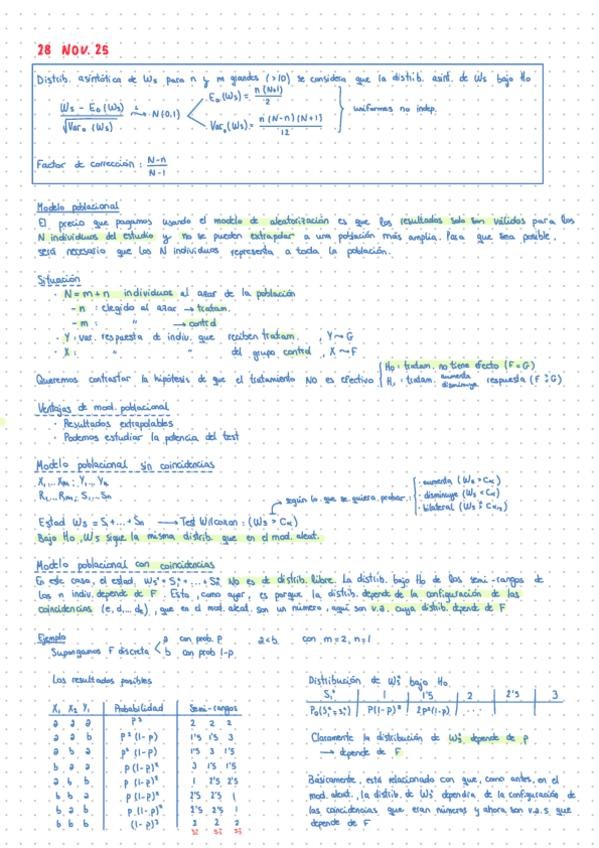 28 NOV. 25
Distrib. asintótica de Ws para n y m grandes (>10) se considera que la distrib. asint. de Ws bajo Ho
Ws - E₀(Ws) / √Var₀(Ws) → N(0,1)
E₀(Ws) = n(N+1)/2
Var₀(Ws) = n(N-n)(N+1)/12
uniformes no indep.
Factor de corrección : N-n / N-1
Modelo poblacional
El precio que pagamos usando el modelo de aleatorización es que los resultados solo son válidos para los
N individuos del estudio y no se pueden extrapolar a una población más amplia. Para que sea posible,
será necesario que los N individuos representa a toda la población.
Situación
· N = m+n individuos al azar de la población
- n : elegido al azar → tratam.
- m : " → control
· Y : var. respuesta de indiv. que reciben tratam. , Y ~ G
· X : " " del grupo control , X ~ F
Queremos contrastar la hipótesis de que el tratamiento NO es efectivo
Ho : tratam. no tiene efecto (F = G)
H₁ : tratam. aumenta disminuye respuesta (F : G)
Ventajas de mod. poblacional
· Resultados extrapolables
· Podemos estudiar la potencia del test
Modelo poblacional sin coincidencias
X₁,... Xm ; Y₁,.. Yn
R₁,.. Rm ; S₁,.. Sn
según lo que se quiera probar :
· aumenta (Ws > Cα)
· disminuye (Ws < Cα)
· bilateral
Estad Ws = S₁+...+Sn → Test Wilcoxon : (Ws > Cα)
Bajo Ho, Ws sigue la misma distrib. que en el mod. aleat.
Modelo poblacional con coincidencias
En este caso, el estad. Ws* = S₁* + ... + Sn* No es de distrib. libre. La distrib. bajo Ho de los semi-rangos de
los n indiv. depende de F. Esto, como ayer, es porque la distrib. depende de la configuración de las
coincidencias (e, d₁,... de), que en el mod. aleat. son un número, aquí son v.a. cuya distrib. depende de F
Ejemplo
Supongamos F discreta
a con prob. p
b con prob 1-p
a < b con m = 2, n = 1
Los resultados posibles
X₁ X₂ Y₁ Probabilidad Semi-rangos
a a a p³ 2 2 2
a a b p²(1-p) 1'5 1'5 3
a b a p²(1-p) 1'5 3 1'5
b a a 3 1'5 1'5
a b b p(1-p)² 1 2'5 2'5
b a b p(1-p)² 2'5 1
b b a p(1-p)² 2'5 2'5 1
b b b (1-p)³ 2 2 2
Distribución de Ws* bajo Ho.
S₁* 1 1'5 2 2'5 3
P₀(S₁*=s₁*) p(1-p)² 2p²(1-p) ...
Claramente la distribución de Ws* depende de p
→ depende de F
Básicamente, está relacionado con que, como antes, en el
mod. aleat., la distrib. de Ws* dependía de la configuración de
las coincidencias que eran números y ahora son v.a.s que
depende de F